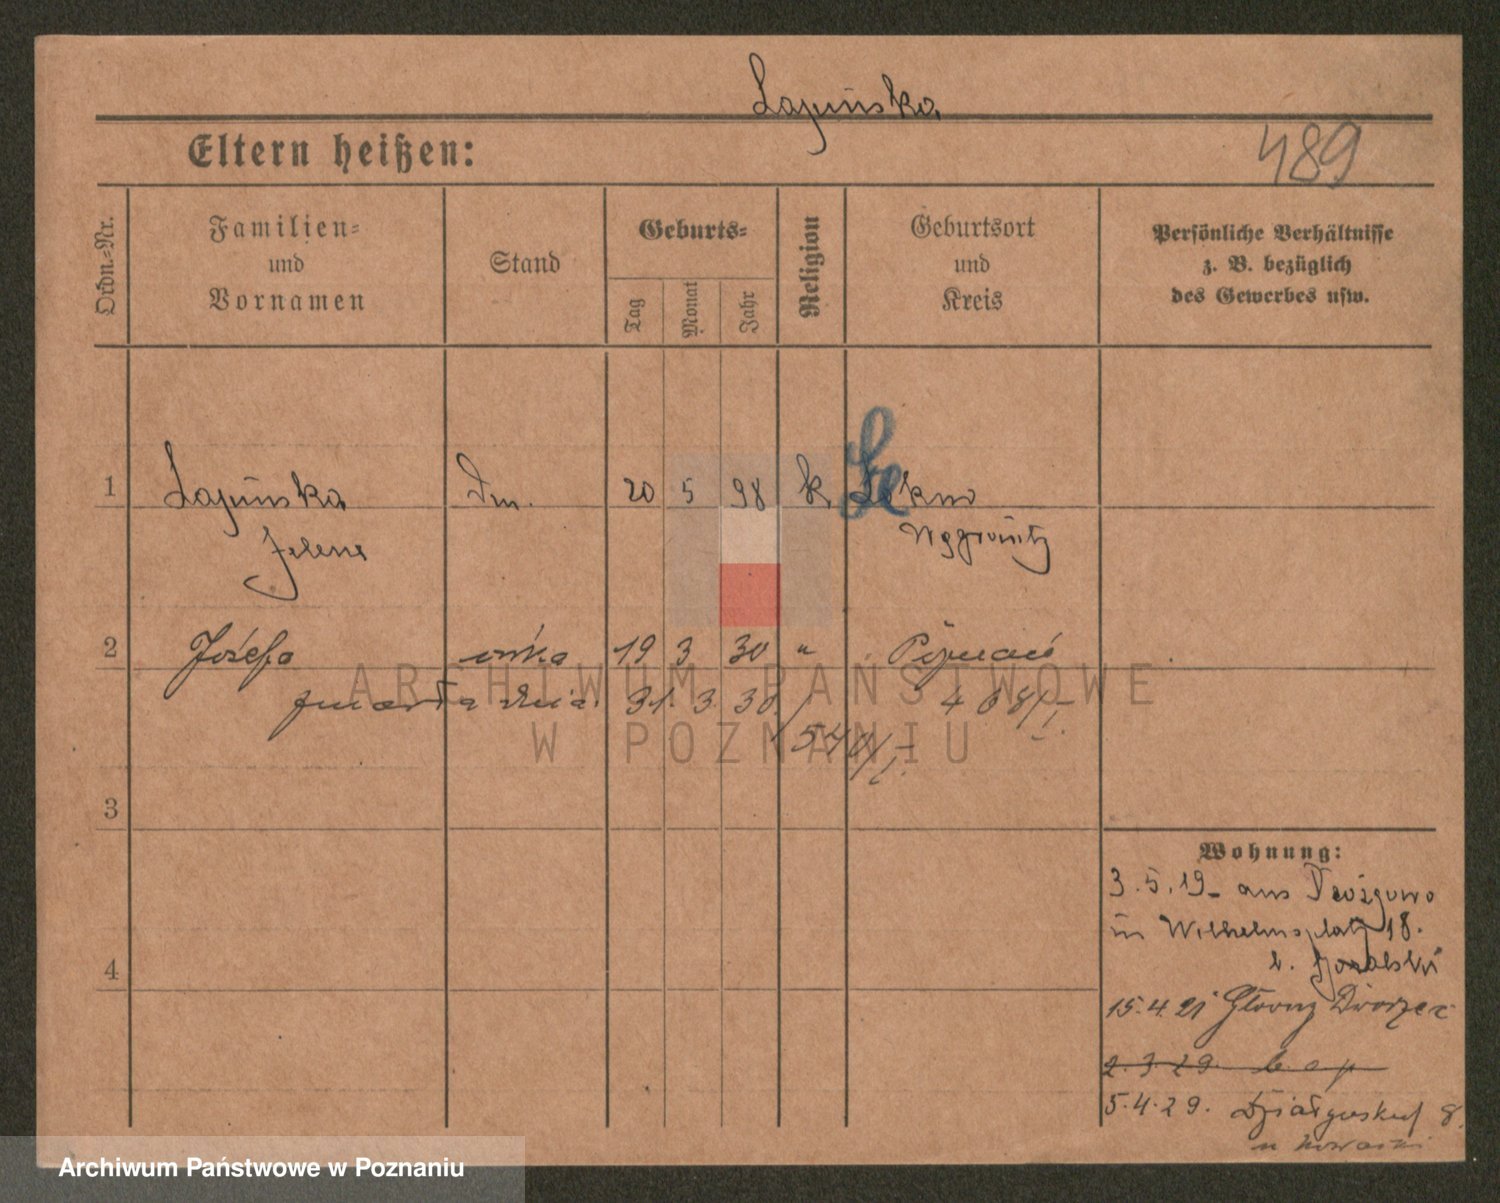 Lapińska
489
Eltern heißen:
Ordn.-Nr.
Familien-
und
Vornamen
Stand
Geburts-
Tag
Monat
Jahr
Religion
Geburtsort
und
Kreis
Persönliche Verhältnisse
z. B. bezüglich
des Gewerbes usw.
1 Lapińska 20 5 98 k. Lekno
Helene
2 Józefa córka 19 3 30 " Poznań
zmarła dnia 31. 3. 30 / 468/I.
540/I.
3
4
Wohnung:
3.5.19 - aus
in Wilhelmsplatz 18.
b.
15.4.21 Główny Dworzec
2.3.29
5.4.29. 8.
u
ARCHIWUM PAŃSTWOWE
W POZNANIU
Archiwum Państwowe w Poznaniu